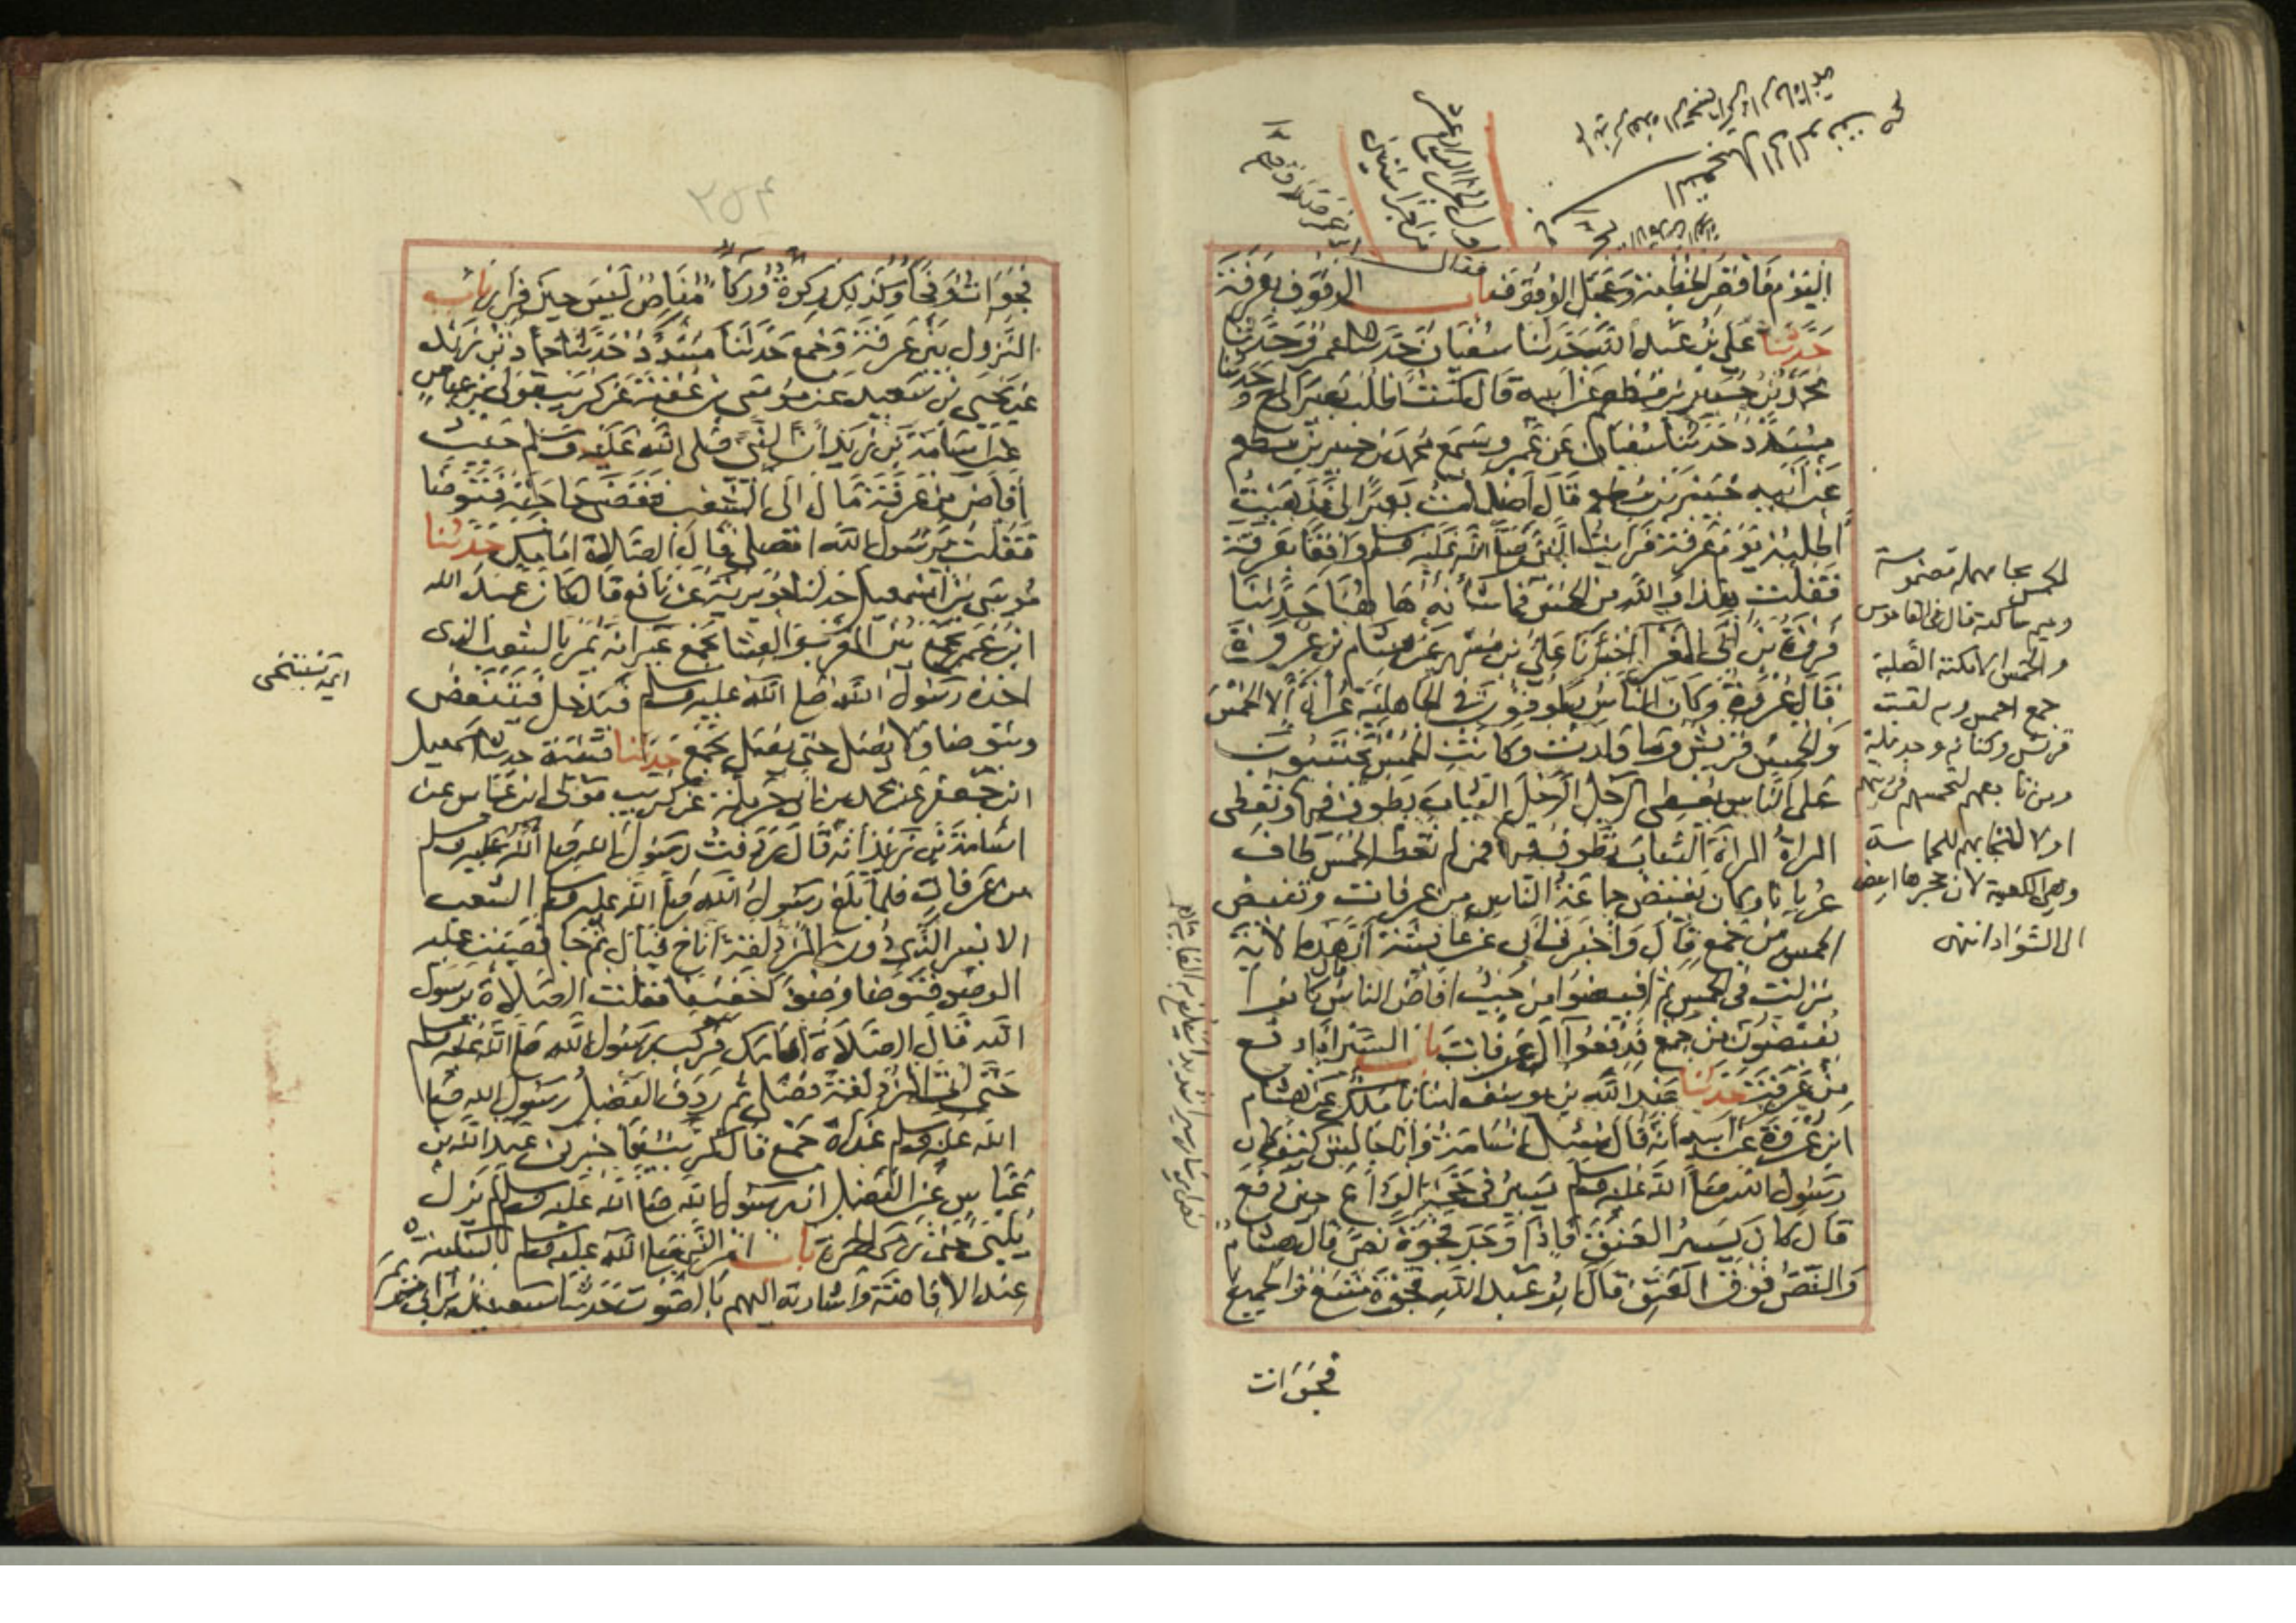 اليوم فاقصر الخطبة وعجل الوقوف فقال باب الوقوف بعرفة
حدثنا علي بن عبد الله حدثنا سفيان حدثنا عمرو حدثنا
محمد بن جبير بن مطعم عن ابيه قال كنت اطلب بعيرا لي ح وحدثنا
مسدد حدثنا سفيان عن عمرو سمع محمد بن جبير بن مطعم
عن ابيه جبير بن مطعم قال اضللت بعيرا لي فذهبت
اطلبه يوم عرفة فرايت النبي صلى الله عليه وسلم واقفا بعرفة
فقلت هذا والله من الحمس فما شأنه ها هنا حدثنا
فروة بن ابي المغرا اخبرنا علي بن مسهر عن هشام بن عروة
قال عروة وكان الناس يطوفون في الجاهلية عراة الا الحمس
والحمس قريش وما ولدت وكانت الحمس يحتسبون
على الناس يعطي الرجل الرجل الثياب يطوف فيها وتعطي
المراة المراة الثياب تطوف فيها فمن لم تعط الحمس طاف
عريانا وكان يفيض جماعة الناس من عرفات وتفيض
الحمس من جمع قال واخبرني ابي عن عائشة ان هذه الاية
نزلت في الحمس ثم افيضوا من حيث افاض الناس قال كانوا
يفيضون من جمع فدفعوا الى عرفات باب السير اذا دفع
من عرفة حدثنا عبد الله بن يوسف انبانا ملك عن هشام
ابن عروة عن ابيه انه قال سئل اسامة وانا جالس كيف كان
رسول الله صلى الله عليه وسلم يسير في حجة الوداع حين دفع
قال كان يسير العنق فاذا وجد فجوة نص قال هشام
والنص فوق العنق قال ابو عبد الله فجوة متسع والجميع
فجوات
الحمس بحا مهملة مضمومة
وميم ساكنة قال في القاموس
والحمس الامكنة الصلبة
جمع احمس وبه لقبت
قريش وكنانة وجديلة
ومن تابعهم لتحمسهم في دينهم
او لالتجائهم بالحمساء
وهي الكعبة لان حجرها ابيض
الى السواد انتهى
٢٥٤
فجوات وفجا وكذلك ركوة وركا مناص ليس حين فرار باب
النزول بين عرفة وجمع حدثنا مسدد حدثنا حماد بن زيد
عن يحيى بن سعيد عن موسى بن عقبة عن كريب مولى بن عباس
عن اسامة بن زيد ان النبي صلى الله عليه وسلم حيث
افاض من عرفة مال الى الشعب فقضى حاجته فتوضا
فقلت يرسول الله اتصلي قال الصلاة امامك حدثنا
موسى بن اسمعيل حدثنا جويرية عن نافع قال كان عبد الله
ابن عمر يجمع بين المغرب والعشا بجمع غير انه يمر بالشعب الذي
اخذه رسول الله صلى الله عليه وسلم فيدخل فينتفض
ويتوضا ولا يصلي حتى يصلي بجمع حدثنا قتيبة حدثنا اسمعيل
ابن جعفر عن محمد بن ابي حرملة عن كريب مولى ابن عباس عن
اسامة بن زيد انه قال ردفت رسول الله صلى الله عليه وسلم
من عرفات فلما بلغ رسول الله صلى الله عليه وسلم الشعب
الايسر الذي دون المزدلفة اناخ فبال ثم جا فصببت عليه
الوضو فتوضا وضوا خفيفا فقلت الصلاة يرسول
الله قال الصلاة امامك فركب رسول الله صلى الله عليه وسلم
حتى اتى المزدلفة فصلى ثم ردف الفضل رسول الله صلى
الله عليه وسلم غداة جمع قال كريب فاخبرني عبد الله بن
عباس عن الفضل ان رسول الله صلى الله عليه وسلم لم يزل
يلبي حتى رمى الجمرة باب امر النبي صلى الله عليه وسلم بالسكينة
عند الافاضة واشارته اليهم بالصوت حدثنا سعيد بن ابي مريم
اي يستنجى